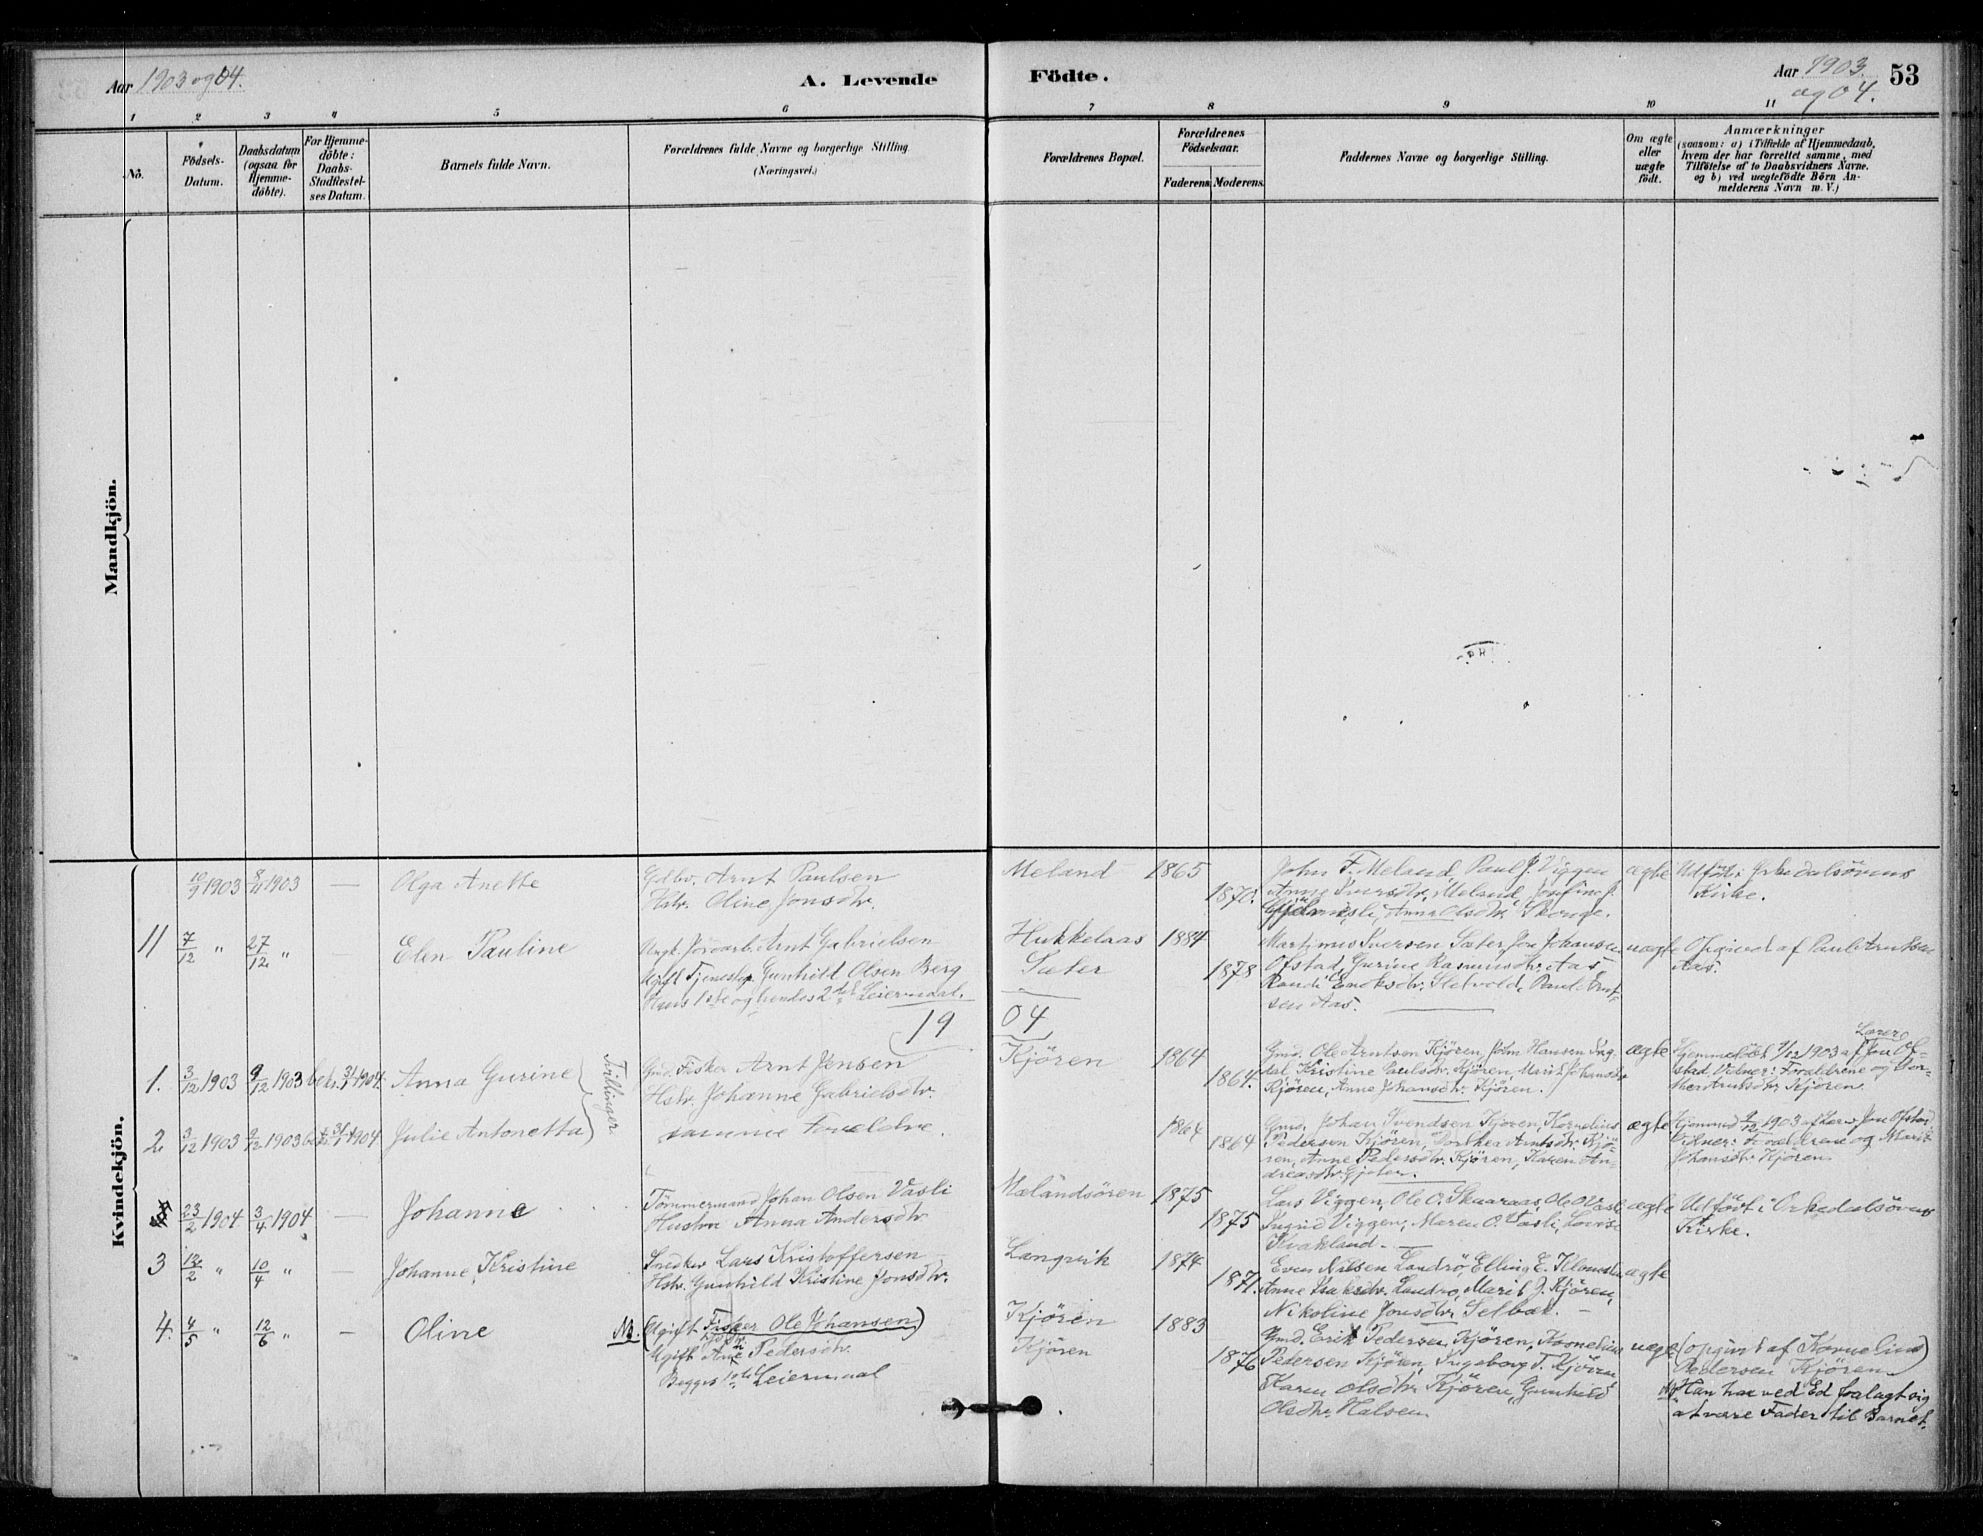 Aar 1903 og 04.
A. Levende Födte.
Aar 1903 og 04.
53
1 2 3 4 5 6 7 8 9 10 11
No.
Födsels-
Datum.
Daabsdatum
(ogsaa for
Hjemme-
döbte).
For Hjemme-
döbte:
Daabs-
Stadfæstel-
ses Datum.
Barnets fulde Navn.
Forældrenes fulde Navne og borgerlige Stilling
(Næringsvei.)
Forældrenes Bopæl.
Forældrenes
Födselsaar.
Faderens. Moderens.
Faddernes Navne og borgerlige Stilling.
Om ægte
eller
uægte
födt.
Anmærkninger
(saasom: a) i Tilfælde af Hjemmedaab,
hvem der har forrettet samme, med
Tilföielse af to Daabsvidners Navne.
og b) ved uægtefödte Börn An-
melderens Navn m. V.)
Mandkjön.
Kvindekjön.
10/9 1903 8/11 1903 — Olga Anette
Gdbr. Arnt Paulsen
Hstr. Oline Jonsdtr.
Meland 1865
1870.
John F. Meland, Paul J. Viggen
Anne Iversdtr. Meland, Josefine J.
Anna Olsdtr. Skorge.
ægte
Udfödt i Orkedalsörens
Kirke.
11 7/12 " 27/12 " — Elen Pauline
Ungk. Jordarb. Arnt Gabrielsen
Ugift Tjenestep. Gunhild Olsen Berg
Hans 1ste og hendes 2det Leiermaal.
Hukkelaas 1884
Sæter 1878
Martinus Iversen Sæter, Jon Johansen
Ofstad, Gurine Rasmusdtr. Aas,
Randi Enoksdtr. Helvold, Paul Arnt-
sen Aas.
uægte
Opgived af Paul Arntsen
Aas.
19 04
1. 3/12 1903 9/12 1903 bekr. 31/1 1904 Anna Gurine
Tvillinger
Gmd. Fisker Arnt Jensen
Hstr. Johanne Gabrielsdtr.
Kjören 1864
1864.
Gmd. Ole Arntsen Kjören, John Hansen Ing-
dal, Kristine Paulsdtr. Kjören, Marit Johansdtr
Kjören, Anne Johansdtr. Kjören.
ægte
Hjemmedöbt 9/12 1903 af Lærer Jon Of-
stad. Vidner: Forældrene og Dor-
thea Arntsdtr. Kjören.
2. 3/12 1903 9/12 1903 bekr. 31/1 1904 Julie Antonetta
samme Forældre.
1864
1864
Gmd. Johan Svendsen Kjören, Kornelius
Pedersen Kjören, Dorthea Arntsdtr. Kjö-
ren, Anne Pedersdtr. Kjören, Karen An-
dreasdtr. Gjölen.
ægte
Hjemmd 9/12 1903 af Lærer Jon Ofstad.
Vidner: Forældrene og Marit
Johansdtr. Kjören
23/2 1904 3/4 1904 — Johanne
Tömmermand Johan Olsen Vasli
Hustru Anna Andersdtr
Mælandsören 1875
1875
Lars Viggen, Ole O. Skaaraas, Ole O. Vasli
Ingrid Viggen, Maren O. Vasli, Lovise
Kvakland. —
ægte
Udfödt i Orkedalsörens
Kirke.
3 12/2 " 10/4 " — Johanne Kristine
Snedker Lars Kristoffersen
Hstr. Gunhild Kristine Jonsdtr.
Langvik 1874
1871.
Even Nilsen Landrö, Elling E.
Anne Isaksdtr. Landrö, Marit J. Kjören,
Nikoline Jonsdtr. Selbek. —
ægte
4. 4/5 " 12/6 " — Oline
Nb. (Ugift Fisker Ole Johansen)
Ugift Ane Pedersdtr.
Begges 1ste Leiermaal
Kjören 1883
Kjören 1876
Gmd. Erik Pedersen Kjören, Kornelius
Pedersen Kjören, Ingeborg T. Kjören
Karen Olsdtr. Kjören, Gunhild
Olsdtr. Halsen
uægte
(opgivet af Kornelius)
Pedersen Kjören
Nb. Han har ved Ed fralagt sig
at være Fader til Barnet.